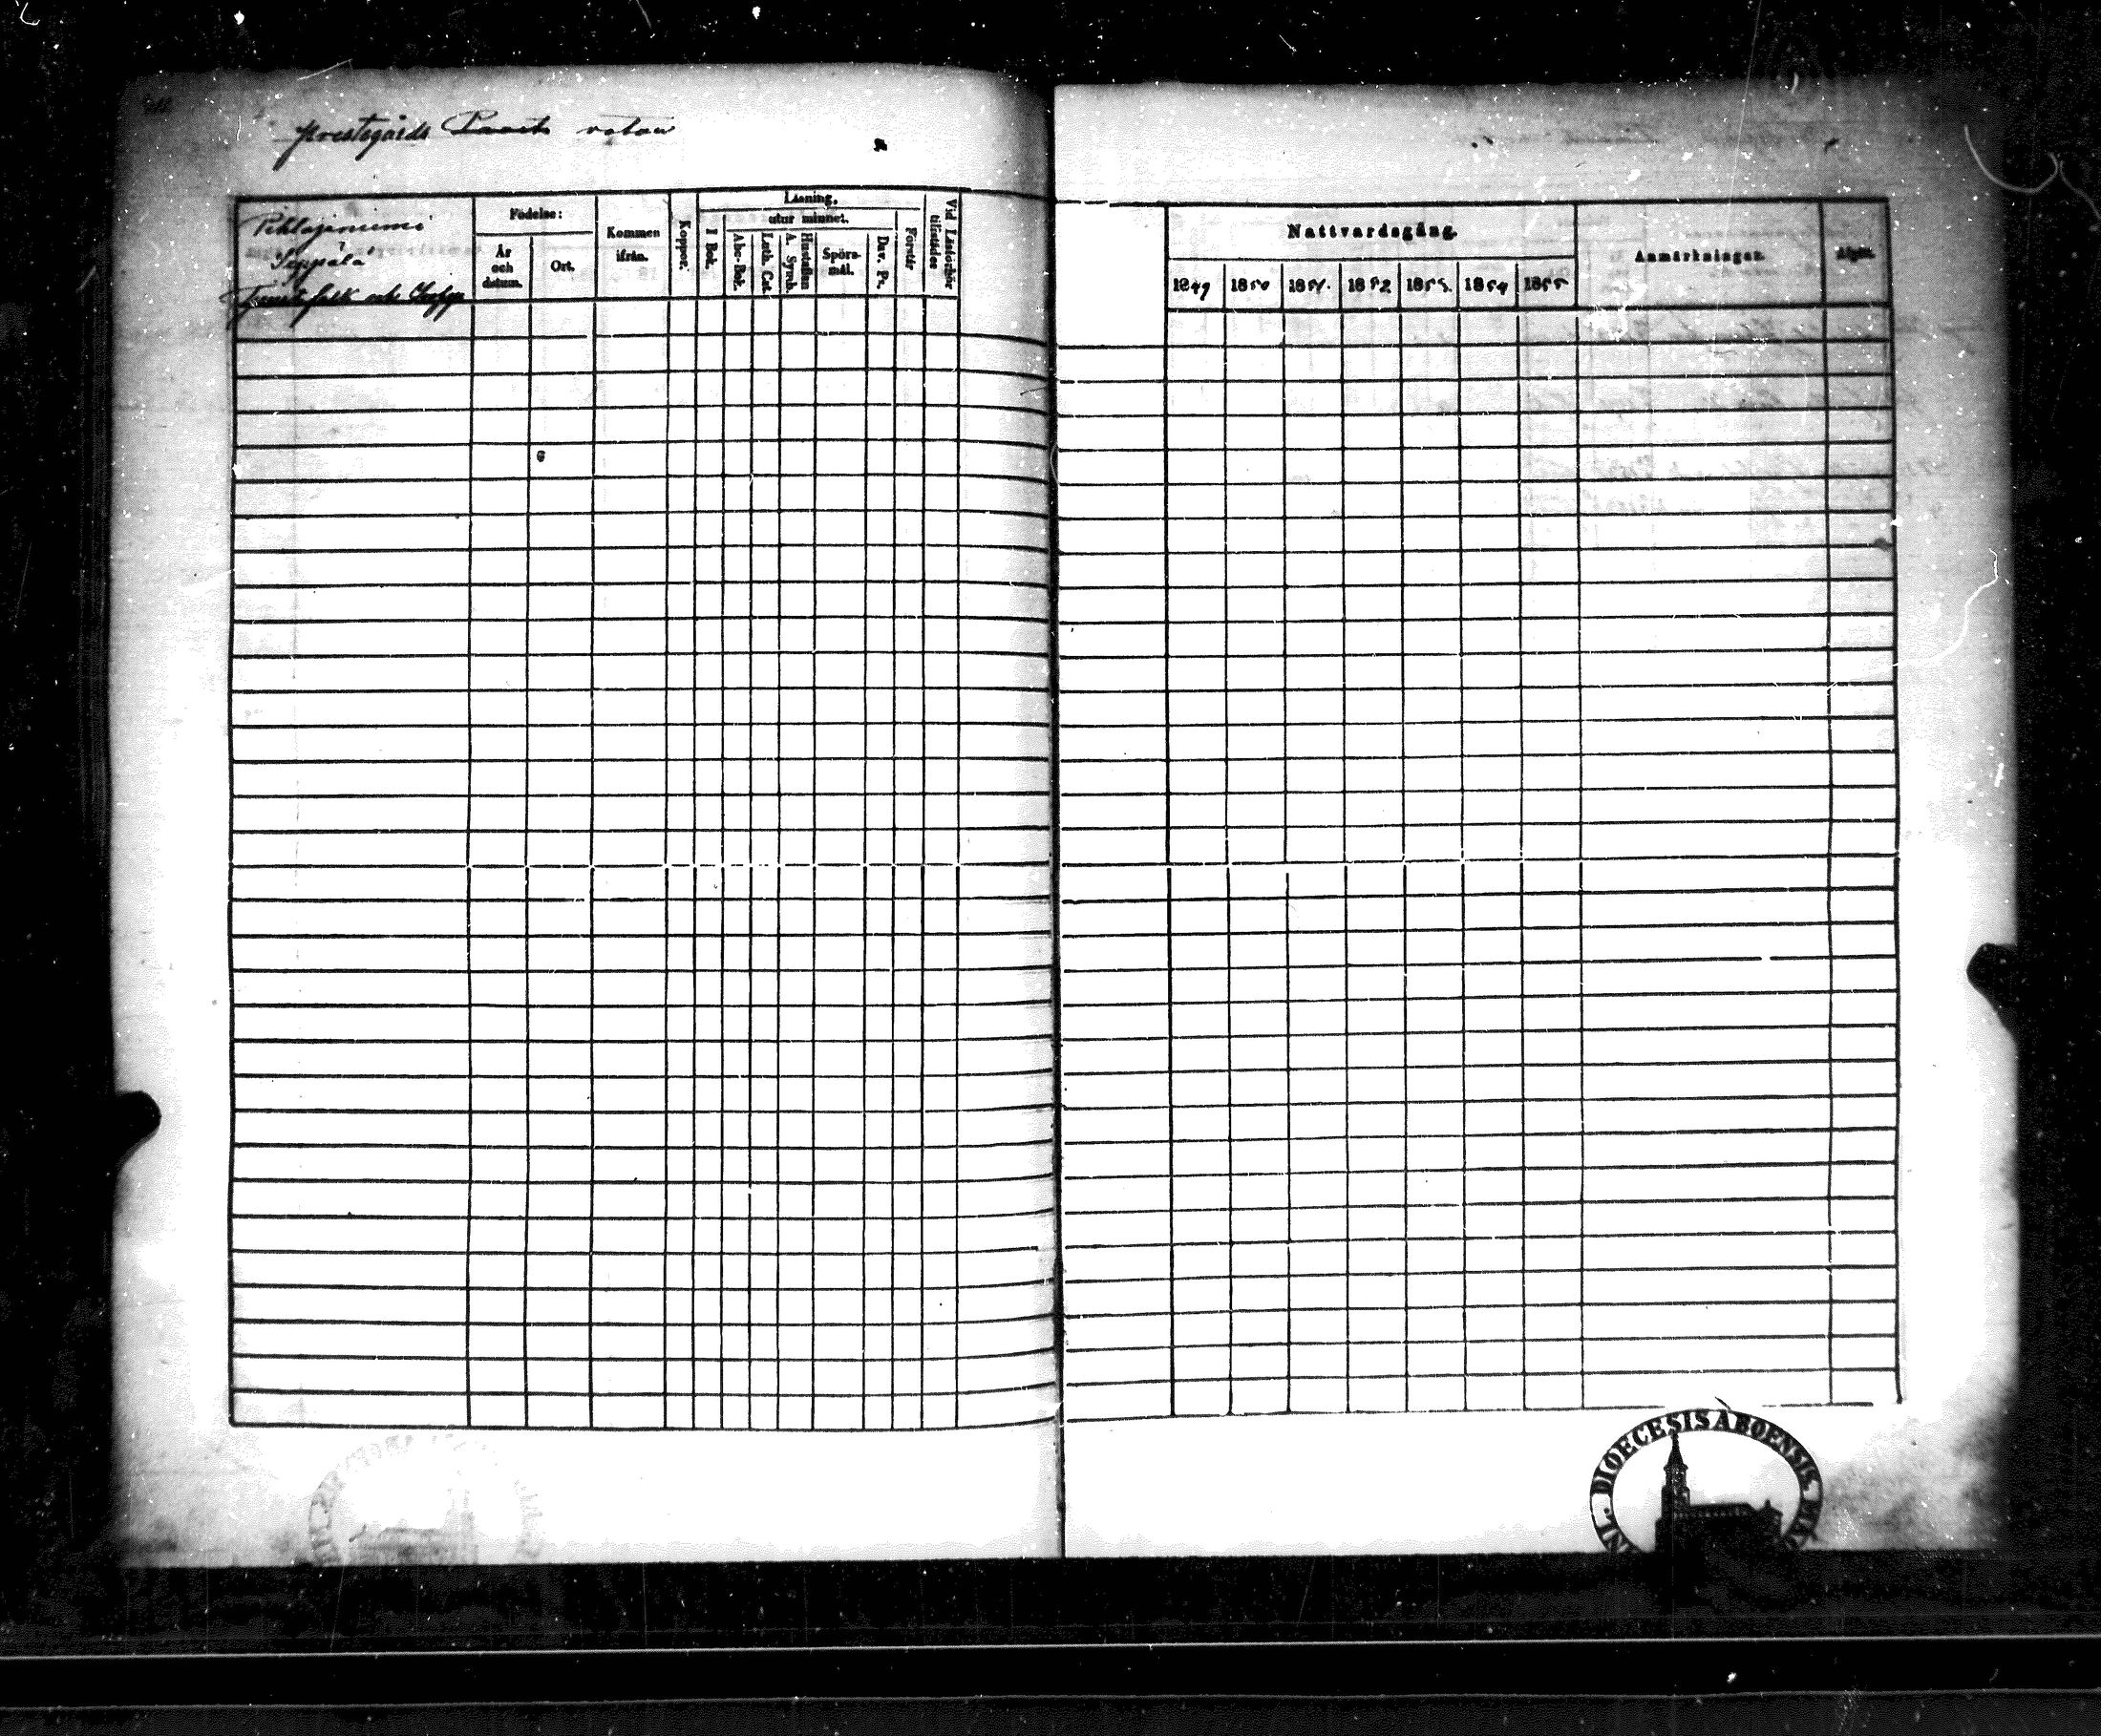 Prestegårds
Pihlajaniemi
Seppälä
Födelse:
År
och
datum.
Ort.
Kommen
ifrån.
Koppor.
Läsning,
I Bok.
utur minnet.
Abc-Bok.
Luth. Cat.
A. Symb.
Hustaflan
Spörs-
mål.
Dav. Ps.
Förstår
Vid Läsförhör
tillstädes
Nattvardsgång.
1849 1850 1851. 1852 1853. 1854 1855
Anmärkningar.
Afgått.
DIOECESIS ABOENSIS